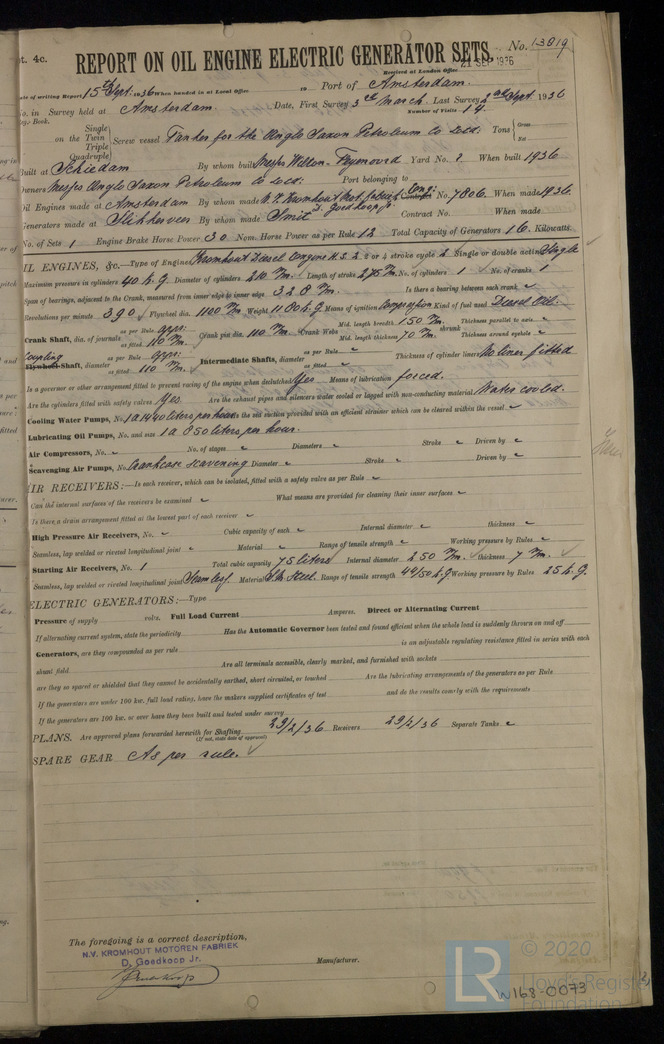 pt. 4c.
REPORT ON OIL ENGINE ELECTRIC GENERATOR SETS.
No. 13819
Received at London Office
21 SEP 1936
Date of writing Report 15th Sept. 1936 When handed in at Local Office 19 Port of Amsterdam.
No. in Survey held at Amsterdam. Date, First Survey 3rd March. Last Survey 2nd Sept. 1936
Reg. Book. Number of Visits 14.
on the Single Twin Triple Quadruple Screw vessel Tanker for the Anglo Saxon Petroleum Co Ltd. Tons Gross Net
Built at Schiedam By whom built Messrs Wilton-Feyenoord Yard No. ? When built 1936
Owners Messrs Anglo Saxon Petroleum Co Ltd. Port belonging to
Oil Engines made at Amsterdam By whom made N.V. Kromhout Mot. fabriek D. Goedkoop Jr. Eng. No. 7806. When made 1936.
Generators made at Slikkerveer By whom made Smit Contract No. When made
No. of Sets 1 Engine Brake Horse Power 30 Nom. Horse Power as per Rule 12 Total Capacity of Generators 16. Kilowatts.
OIL ENGINES, &c.—Type of Engine Kromhout Diesel Engine 2 or 4 stroke cycle 2 Single or double acting Single
Maximum pressure in cylinders 40 k.g. Diameter of cylinders 210 m/m. Length of stroke 275 m/m. No. of cylinders 1 No. of cranks 1
Span of bearings, adjacent to the Crank, measured from inner edge to inner edge 328 m/m. Is there a bearing between each crank
Revolutions per minute 390 Flywheel dia. 1100 m/m. Weight 1180 k.g. Means of ignition Compression Kind of fuel used Diesel Oil.
Crank Shaft, dia. of journals as per Rule appr: as fitted 110 m/m. Crank pin dia. 110 m/m. Crank Webs Mid. length breadth 150 m/m. Mid. length thickness 70 m/m. shrunk Thickness parallel to axis Thickness around eyehole
Coupling Flywheel Shaft, diameter as per Rule appr: as fitted 110 m/m. Intermediate Shafts, diameter as per Rule as fitted Thickness of cylinder liners No liner fitted
Is a governor or other arrangement fitted to prevent racing of the engine when declutched Yes Means of lubrication forced.
Are the cylinders fitted with safety valves Yes. Are the exhaust pipes and silencers water cooled or lagged with non-conducting material Water cooled.
Cooling Water Pumps, No. 1 a 1440 liters per hour Is the sea suction provided with an efficient strainer which can be cleared within the vessel
Lubricating Oil Pumps, No. and size 1 a 850 liters per hour.
Air Compressors, No. No. of stages Diameters Stroke Driven by
Scavenging Air Pumps, No. Crankcase scavening Diameter Stroke Driven by
AIR RECEIVERS:—Is each receiver, which can be isolated, fitted with a safety valve as per Rule
Can the internal surfaces of the receivers be examined What means are provided for cleaning their inner surfaces
Is there a drain arrangement fitted at the lowest part of each receiver
High Pressure Air Receivers, No. Cubic capacity of each Internal diameter thickness
Seamless, lap welded or riveted longitudinal joint Material Range of tensile strength Working pressure by Rules
Starting Air Receivers, No. 1 Total cubic capacity 75 liters Internal diameter 250 m/m. thickness 7 m/m.
Seamless, lap welded or riveted longitudinal joint Seamless. Material S.M. Steel. Range of tensile strength 44/50 k.g. Working pressure by Rules 25 k.g.
ELECTRIC GENERATORS:—Type
Pressure of supply volts. Full Load Current Amperes. Direct or Alternating Current
If alternating current system, state the periodicity Has the Automatic Governor been tested and found efficient when the whole load is suddenly thrown on and off
Generators, are they compounded as per rule is an adjustable regulating resistance fitted in series with each
shunt field Are all terminals accessible, clearly marked, and furnished with sockets
are they so spaced or shielded that they cannot be accidentally earthed, short circuited, or touched Are the lubricating arrangements of the generators as per Rule
If the generators are under 100 kw. full load rating, have the makers supplied certificates of test and do the results comply with the requirements
If the generators are 100 kw. or over have they been built and tested under survey
PLANS. Are approved plans forwarded herewith for Shafting 29/2/36 Receivers 29/2/36 Separate Tanks
(If not, state date of approval)
SPARE GEAR As per rule.
The foregoing is a correct description,
N.V. KROMHOUT MOTOREN FABRIEK
D. Goedkoop Jr.
Manufacturer.
LR © 2020
Lloyd's Register
Foundation
W168-0073